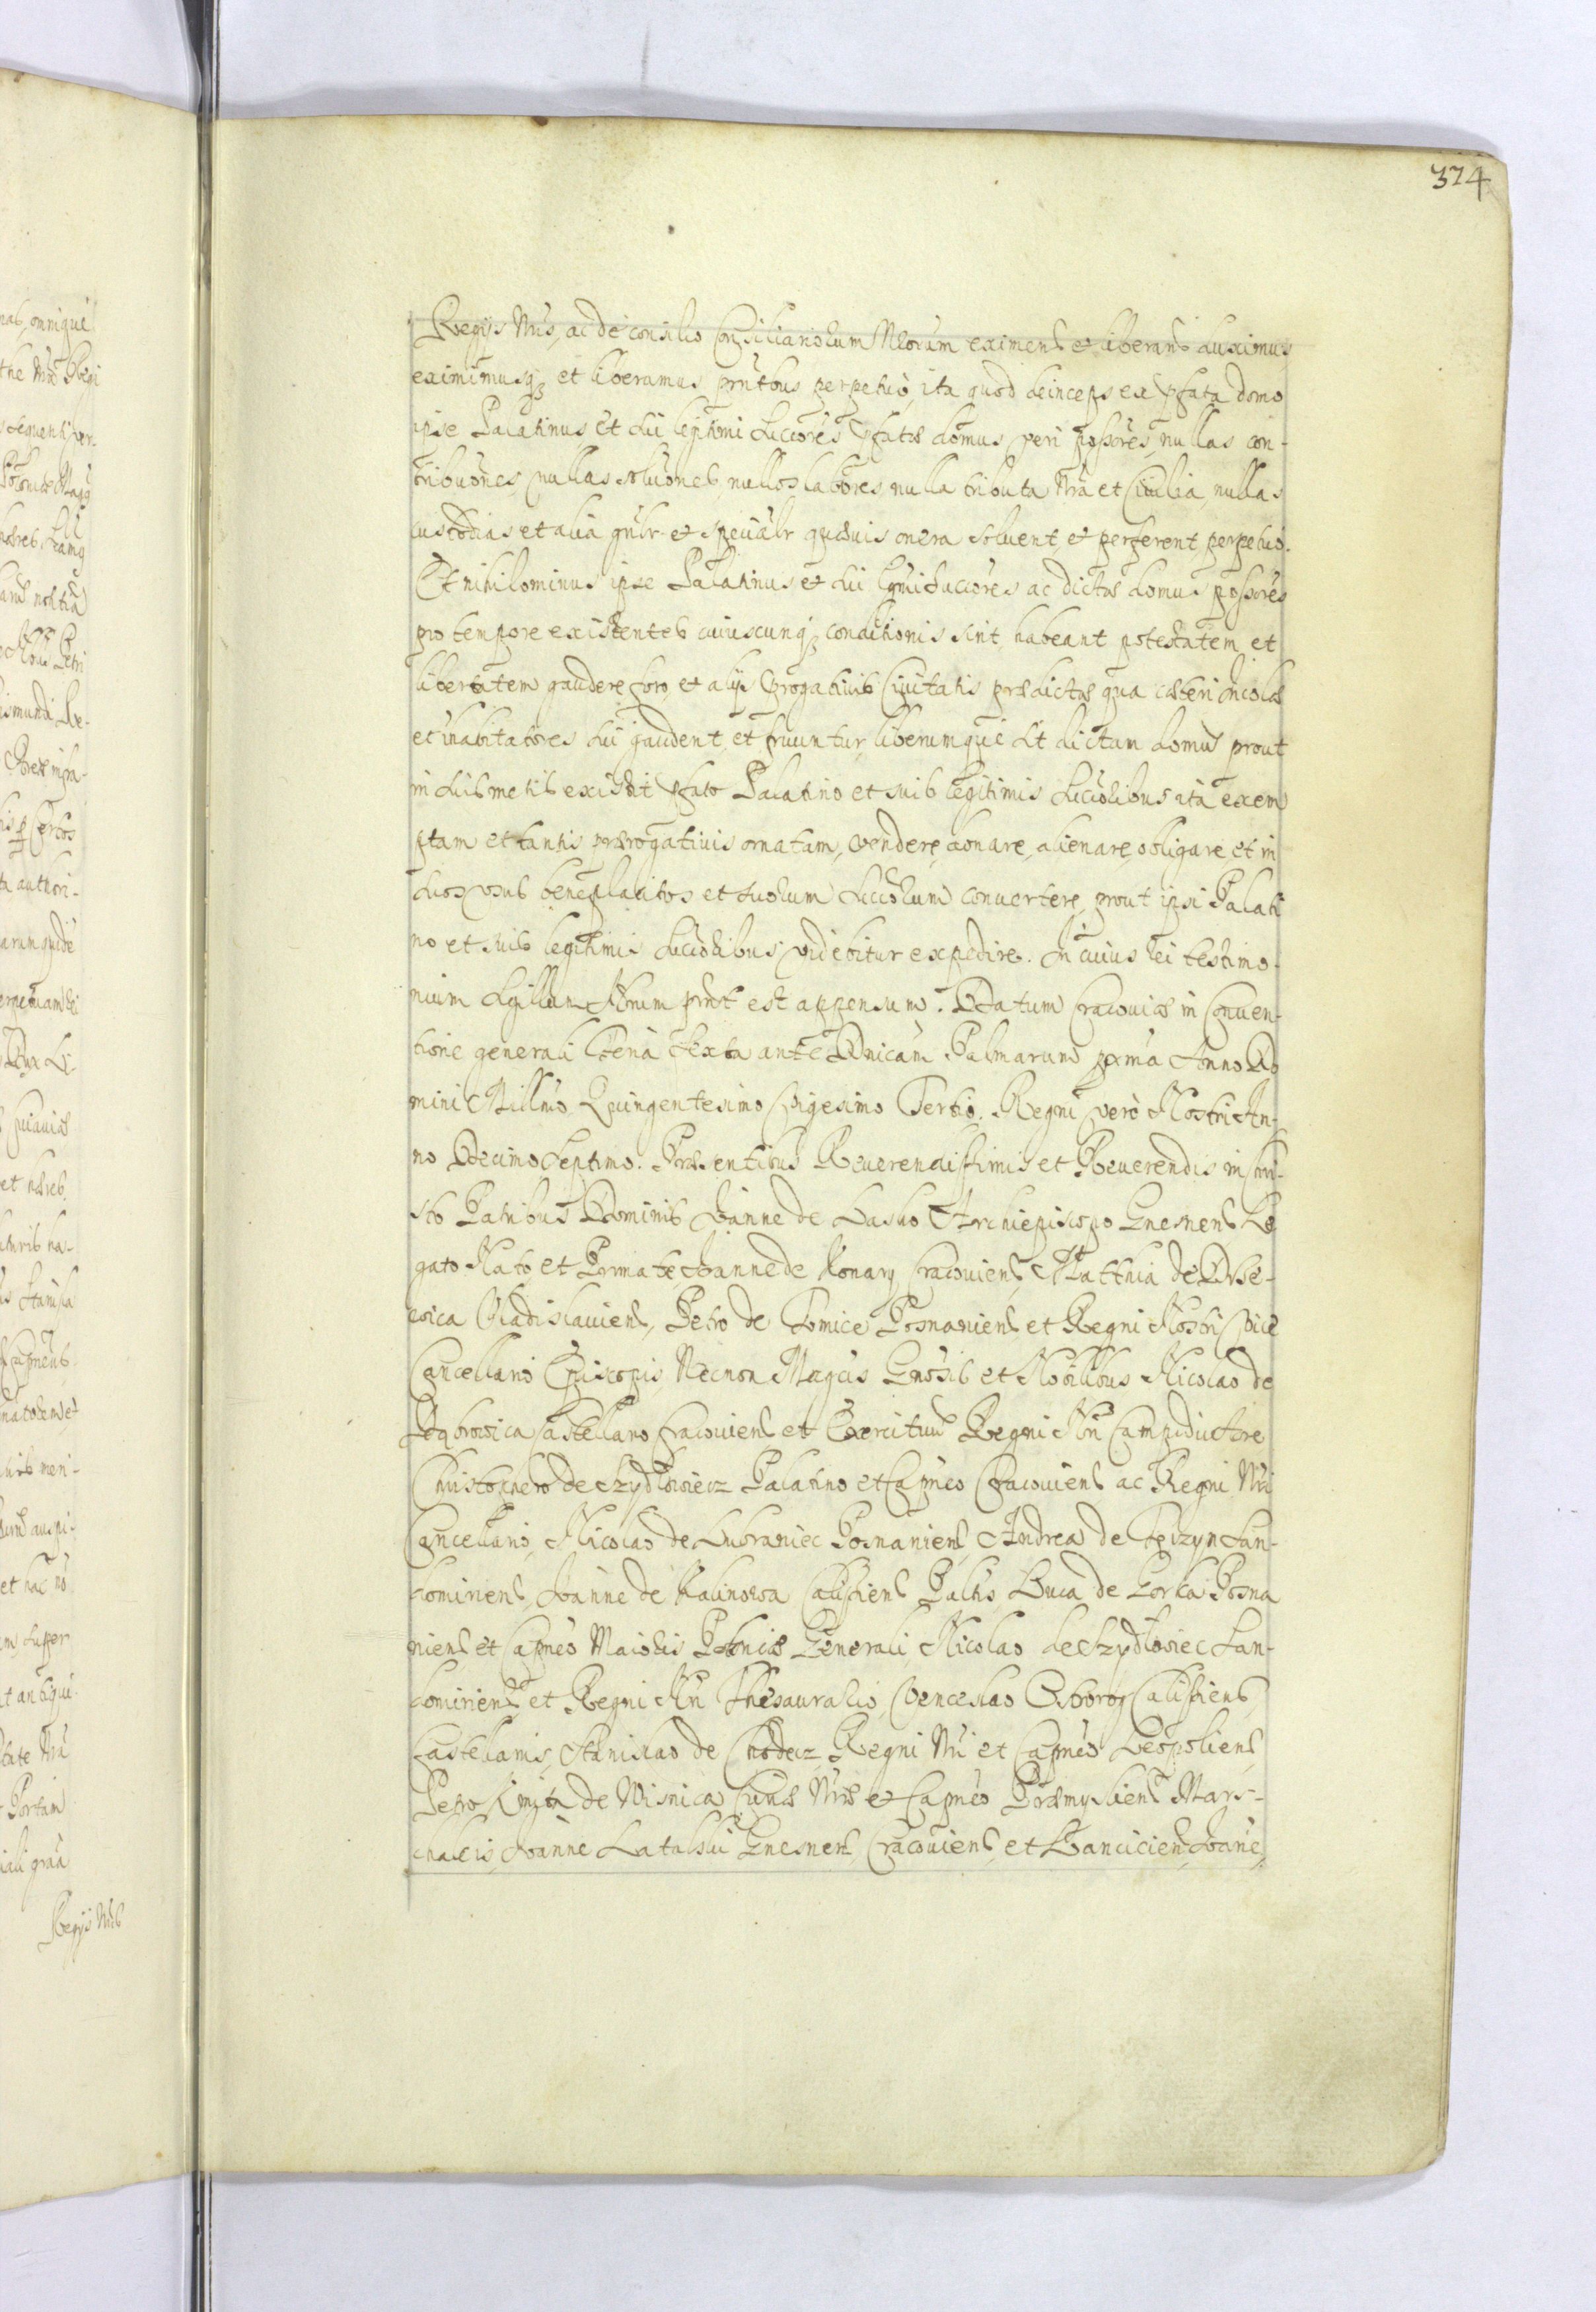 374
Regijs Nris, ac de consilio Consiliariorum Nrorum eximens et liberans duximus
eximimusq; et liberamus pñtibus perpetuò, ita quod deinceps ex pfata domo
ipse Palatinus et sui legitimi succores pfatæ domus veri possores, nullas con-
tribuões, nullas soluões, nullos labores, nulla tributa Nra et Ciuilia, nullas
custodias et alia gñlr et speciãlr quæuis onera soluent, et perferent perpetuò.
Et nihilominus ipse Palatinus et sui lgmi succores ac dictæ domus possores
pro tempore existentes cuiuscunq; conditionis sint, habeant potestatem et
libertatem gaudere foro, et alijs prrogatiuis Ciuitatis prædictæ qua cæteri incolæ
et inhabitatores sui gaudent, et fruuntur, liberumque sit dictam domũ prout
in suis metis existit pfato Palatino et suis legitimis succoribus ità exem
ptam et tantis prærogatiuis ornatam, vendere, donare, alienare, obligare et in
suos vsus beneplacitos et suorum succorum conuertere, prout ipsi Palati
no et suis legitimis succoribus videbitur expedire. In cuius rei testimo-
nium sigillum Nrum pñt est appensum. Datum Cracouiæ in Conuen-
tione generali feria sexta ante Dnicam Palmarum pxma Anno Do
mini Millmo Quingentesimo Vigesimo Tertio, Regni verò Nostri An-
no Decimo septimo. Præsentibus Reuerendissimis et Reuerendis in Chri-
sto Patribus Dominis Joanne de Lasko Archiepiscopo Gnesnens Le
gato Nato et Prmate, Joanne de Konary Cracouiens, Matthia de Drze-
wica Vladislauiens, Petro de Tomice Posnaniens et Regni Nostri Vice
Cancellario Episcopis, Necnon Magcis Gnosis et Nobilibus Nicolao de
Dąbrowica Castellano Cracouiens et Exercituũ Regni Nri Campiductore
Christophero de Szydłowiecz Palatino et Capneo Cracouiens ac Regni Nri
Cancellario, Nicolao de Lubraniec Posnaniens, Andrea de Tęczyn San-
domiriens, Joanne de Kalinowa Calissiens Paltis Luca de Gorka Posna
niens et Capneo Maioris Poloniæ Generali, Nicolao de Szydłowiec San-
domiriens et Regni Nri Thesaurario, Venceslao Ostrorog Calissiens
Castellanis, Stanislao de Chodecz Regni Nri et Capneo Leopoliens,
Petro Kmita de Wisnicz Curiæ Nræ et Capneo Præmysliens Mars-
chalcis, Joanne Latalski Gnesnens, Cracouiens, et Lanciciens, Joane,